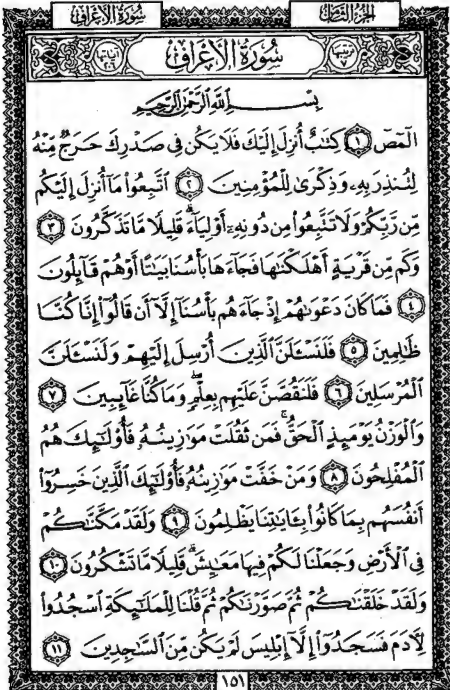 سُورَةُ الأَعْرَافِ
الجُزْءُ الثَّامِنُ
سُورَةُ الأَعْرَافِ
بِسْمِ ٱللَّهِ ٱلرَّحْمَٰنِ ٱلرَّحِيمِ
الٓمٓصٓ ١ كِتَٰبٌ أُنزِلَ إِلَيْكَ فَلَا يَكُن فِى صَدْرِكَ حَرَجٌ مِّنْهُ
لِتُنذِرَ بِهِۦ وَذِكْرَىٰ لِلْمُؤْمِنِينَ ٢ ٱتَّبِعُوا۟ مَآ أُنزِلَ إِلَيْكُم
مِّن رَّبِّكُمْ وَلَا تَتَّبِعُوا۟ مِن دُونِهِۦٓ أَوْلِيَآءَ ۗ قَلِيلًا مَّا تَذَكَّرُونَ ٣
وَكَم مِّن قَرْيَةٍ أَهْلَكْنَٰهَا فَجَآءَهَا بَأْسُنَا بَيَٰتًا أَوْ هُمْ قَآئِلُونَ
٤ فَمَا كَانَ دَعْوَىٰهُمْ إِذْ جَآءَهُم بَأْسُنَآ إِلَّآ أَن قَالُوٓا۟ إِنَّا كُنَّا
ظَٰلِمِينَ ٥ فَلَنَسْـَٔلَنَّ ٱلَّذِينَ أُرْسِلَ إِلَيْهِمْ وَلَنَسْـَٔلَنَّ
ٱلْمُرْسَلِينَ ٦ فَلَنَقُصَّنَّ عَلَيْهِم بِعِلْمٍ ۖ وَمَا كُنَّا غَآئِبِينَ ٧
وَٱلْوَزْنُ يَوْمَئِذٍ ٱلْحَقُّ ۚ فَمَن ثَقُلَتْ مَوَٰزِينُهُۥ فَأُو۟لَٰٓئِكَ هُمُ
ٱلْمُفْلِحُونَ ٨ وَمَنْ خَفَّتْ مَوَٰزِينُهُۥ فَأُو۟لَٰٓئِكَ ٱلَّذِينَ خَسِرُوٓا۟
أَنفُسَهُم بِمَا كَانُوا۟ بِـَٔايَٰتِنَا يَظْلِمُونَ ٩ وَلَقَدْ مَكَّنَّٰكُمْ
فِى ٱلْأَرْضِ وَجَعَلْنَا لَكُمْ فِيهَا مَعَٰيِشَ ۗ قَلِيلًا مَّا تَشْكُرُونَ ١٠
وَلَقَدْ خَلَقْنَٰكُمْ ثُمَّ صَوَّرْنَٰكُمْ ثُمَّ قُلْنَا لِلْمَلَٰٓئِكَةِ ٱسْجُدُوا۟
لِـَٔادَمَ فَسَجَدُوٓا۟ إِلَّآ إِبْلِيسَ لَمْ يَكُن مِّنَ ٱلسَّٰجِدِينَ ١١
١٥١